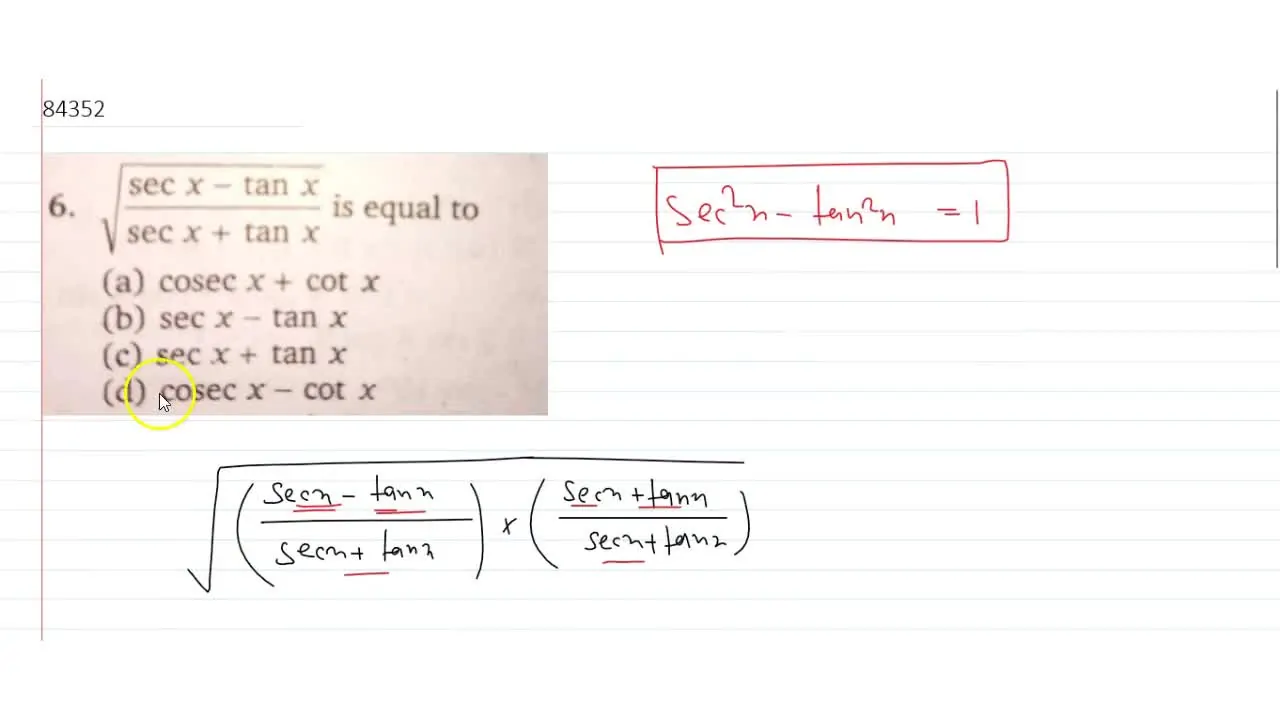 84352
6. √((sec x − tan x)/(sec x + tan x)) is equal to
(a) cosec x + cot x
(b) sec x − tan x
(c) sec x + tan x
(d) cosec x − cot x
Sec²x − tan²x = 1
√((secx − tanx)/(secx + tanx)) × ((secx + tanx)/(secx + tanx))